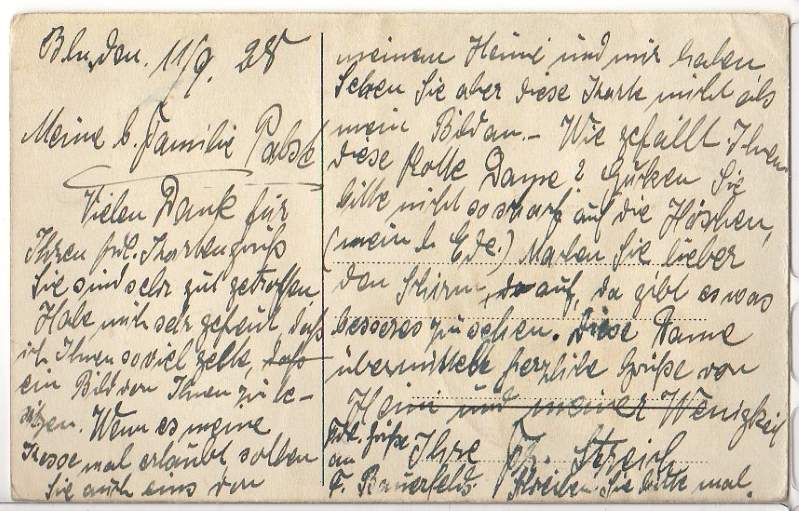 11/9. 28
Meine l. Familie Pabst
Vielen Dank für
Ihren frdl. Kartengruß
Sie sind sehr gut getroffen
Habe mich sehr gefreut, daß
ich Ihnen so viel gelte, daß
ein Bild von Ihnen zu be-
sitzen. Wenn es meine
Kasse mal erlaubt sollen
Sie auch eins von
meinem Heini und mir haben
Sehen Sie aber diese Karte nicht als
mein Bild an. – Wie gefällt Ihnen
diese flotte Dame? Gucken Sie
bitte nicht so scharf auf die Höschen,
(mein l. Ede.) Machen Sie lieber
den Schirm, auf, da gibt es was
besseres zu sehen. Diese Dame
übermittelt herzliche Grüße von
Heini und meiner Wenigkeit
Ihre
Frdl. Grüße
an
F. Bauerfelds. Schreiben Sie bitte mal.